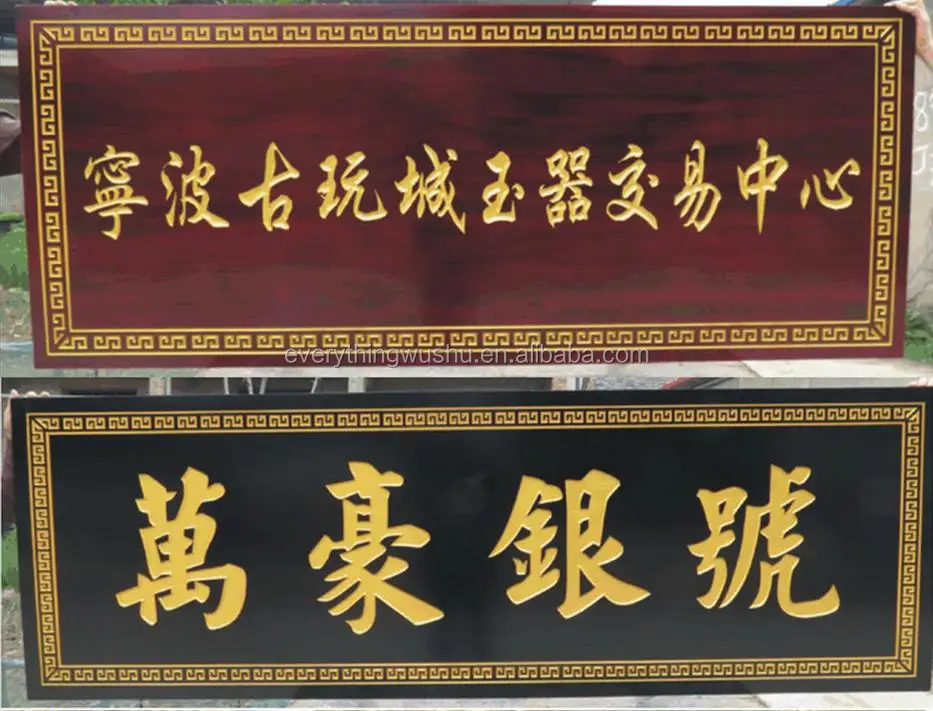 寧波古玩城玉器交易中心
everythingwushu.en.alibaba.com
萬豪銀號